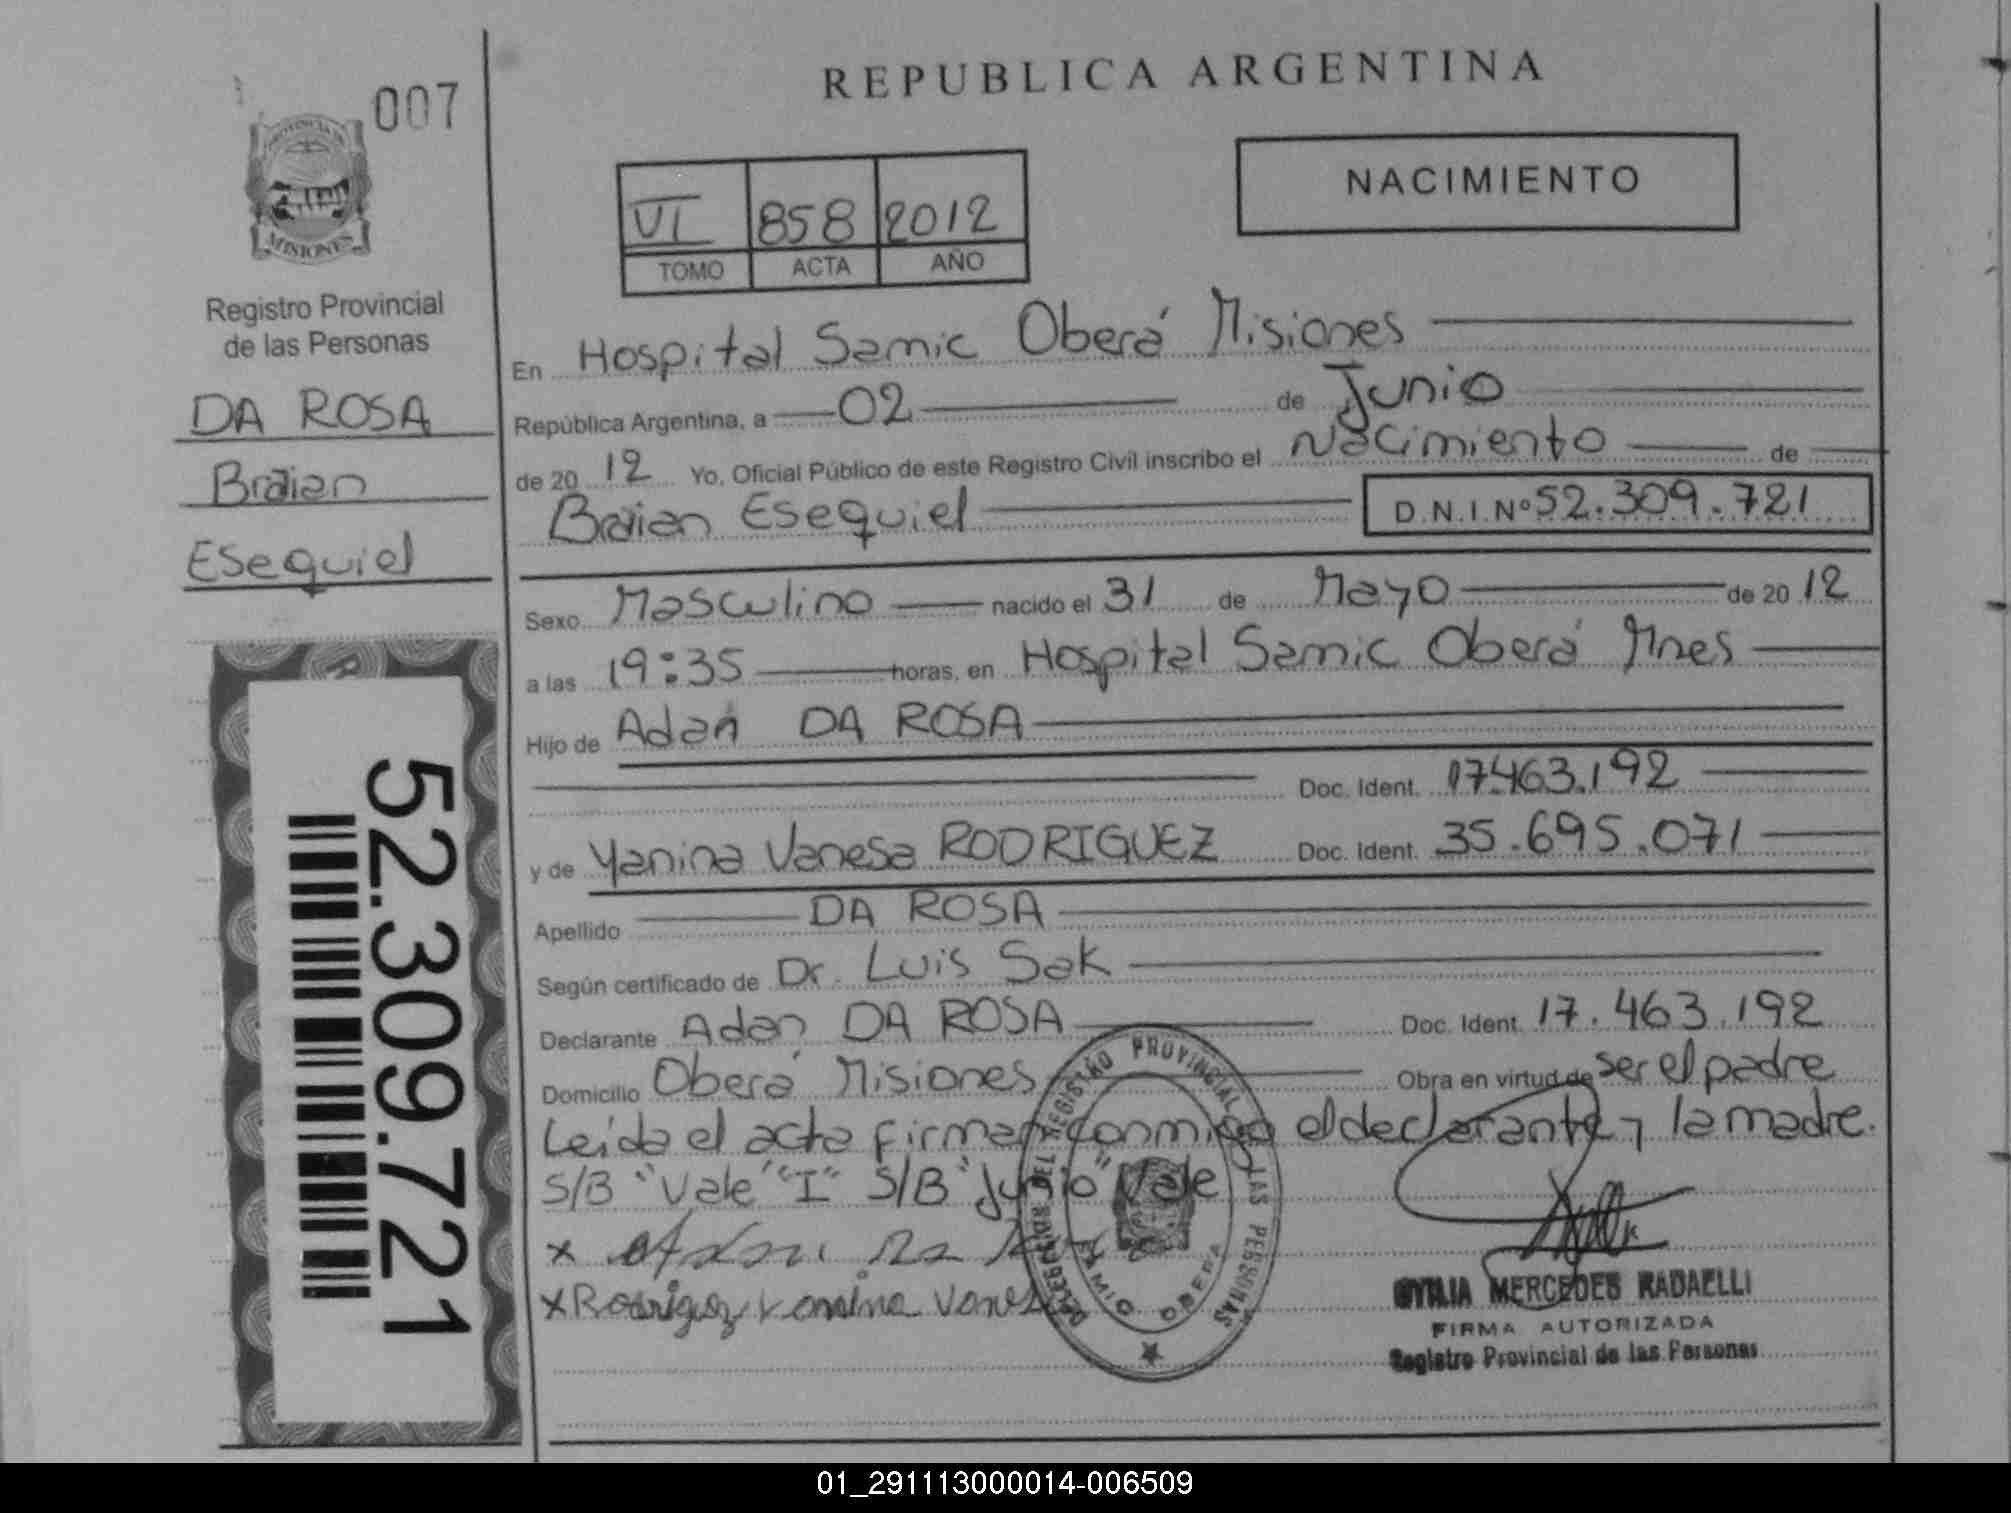 007
PROVINCIA DE
MISIONES
Registro Provincial
de las Personas
DA ROSA
Braian
Esequiel
52.309.721
REPUBLICA ARGENTINA
VI 858 2012
TOMO ACTA AÑO
NACIMIENTO
En Hospital Samic Oberá Misiones
República Argentina, a 02 de Junio
de 20 12 Yo, Oficial Público de este Registro Civil inscribo el Nacimiento de
Braian Esequiel D.N.I.Nº 52.309.721
Sexo Masculino nacido el 31 de Mayo de 20 12
a las 19:35 horas, en Hospital Samic Oberá Mnes
Hijo de Adan DA ROSA
Doc. Ident. 17.463.192
y de Yanina Vanesa RODRIGUEZ Doc. Ident. 35.695.071
Apellido DA ROSA
Según certificado de Dr. Luis Sak
Declarante Adan DA ROSA Doc. Ident. 17.463.192
Domicilio Oberá Misiones Obra en virtud de ser el padre
Leída el acta firman conmigo el declarante y la madre.
S/B "Vale" "I" S/B "Junio" Vale
x
x Rodriguez Yanina Vanesa
DEL REGISTRO PROVINCIAL LAS PERSONAS
OBERA
MERCEDES RADAELLI
FIRMA AUTORIZADA
Registro Provincial de las Personas
01_291113000014-006509